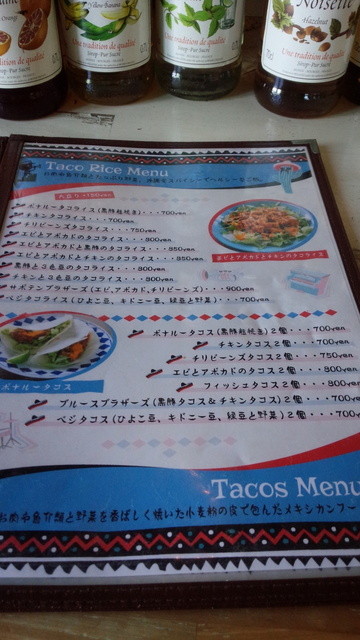 Orange
Yellow Banana
Une tradition de qualité
Sirop - Pur Sucre
Une tradition de qualité
Sirop - Pur Sucre
Noisette
Hazelnut
Une tradition de qualité
Sirop - Pur Sucre
Taco Rice Menu
ボナルータコライス(黒豚粗挽き)・・・700yen
チキンタコライス・・・700yen
チリビーンズタコライス・・・750yen
エビとアボカドのタコライス・・・800yen
エビとアボカドと黒豚のタコライス・・・850yen
エビとアボカドとチキンのタコライス・・・850yen
黒豚と3色豆のタコライス・・・800yen
チキンと3色豆のタコライス・・・800yen
サボテンブラザーズ(エビ,アボカド,チリビーンズ)・・・900yen
ベジタコライス(ひよこ豆、キドニー豆、緑豆と野菜)・・・700yen
エビとアボカドとチキンのタコライス
ボナルータコス(黒豚粗挽き)2個・・・700yen
チキンタコス2個・・・700yen
チリビーンズタコス2個・・・750yen
エビとアボカドのタコス2個・・・800yen
フィッシュタコス2個・・・800yen
ボナルータコス
ブルースブラザーズ(黒豚タコス&チキンタコス)2個・・・700yen
ベジタコス(ひよこ豆、キドニー豆、緑豆と野菜)2個・・・700yen
Tacos Menu
お肉や魚介類と野菜を香ばしく焼いた小麦粉の皮で包んだメキシカンフー